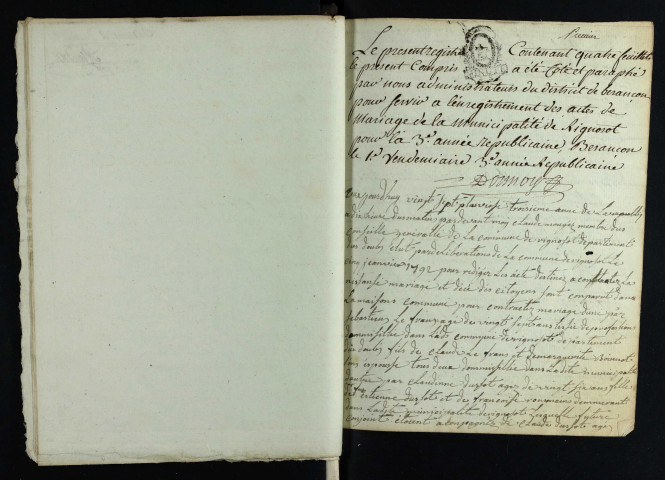 Premier
Le present registre Contenant quatre feuillets
le present Compris a été Coté et paraphé
par nous administrateurs du district de besançon
pour servir a l'enregistrement des actes de
Mariage de la Municipalité de Rignosot
pour la 3e année Republicaine, Besançon
le 1er Vendemiaire 3e année Republicaine
aujourdhuy vingt sept pluviose troisieme anne de La republique
a dix heure du matin par devant moy claude membre du
conseille generalle de la commune de rignosot departement
du doubs elut par deliberations de la commune de rignosot le
cinq janvier 1792 pour rediger les acte destinez a constater les
naissance mariage et décé des citoyens sont comparut dans
la maisons commune pour contracter mariage d'une part
sebastiens Le franc agé de vingt sept ans de profession
domicilliee dans ladite commune de rignosote departement
du doubs fils de claude Le franc et de marguerite
son epouse tous deux domicilliee dans ladite municipalité
d'autre part claudine age de vingt six ans fille
de etienne et de francoise demeurant
dans ladite municipalité de rignosote lesquelle future
conjoint etoient acompagnez de claude agez